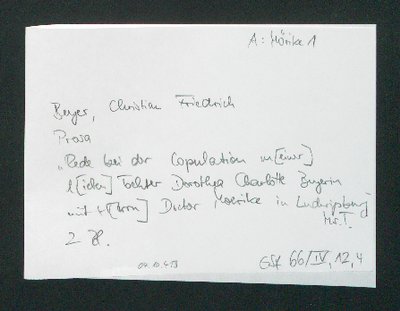 A: Mörike 1
Beyer, Christian Friedrich
Prosa
"Rede bei der Copulation m[einer]
l[ieben] Tochter Dorothea Charlotte Beyerin
mit H[errn] Doctor Moerike in Ludwigsburg
Ms. T.
2 Bl.
GSA 66/IV, 12, 4